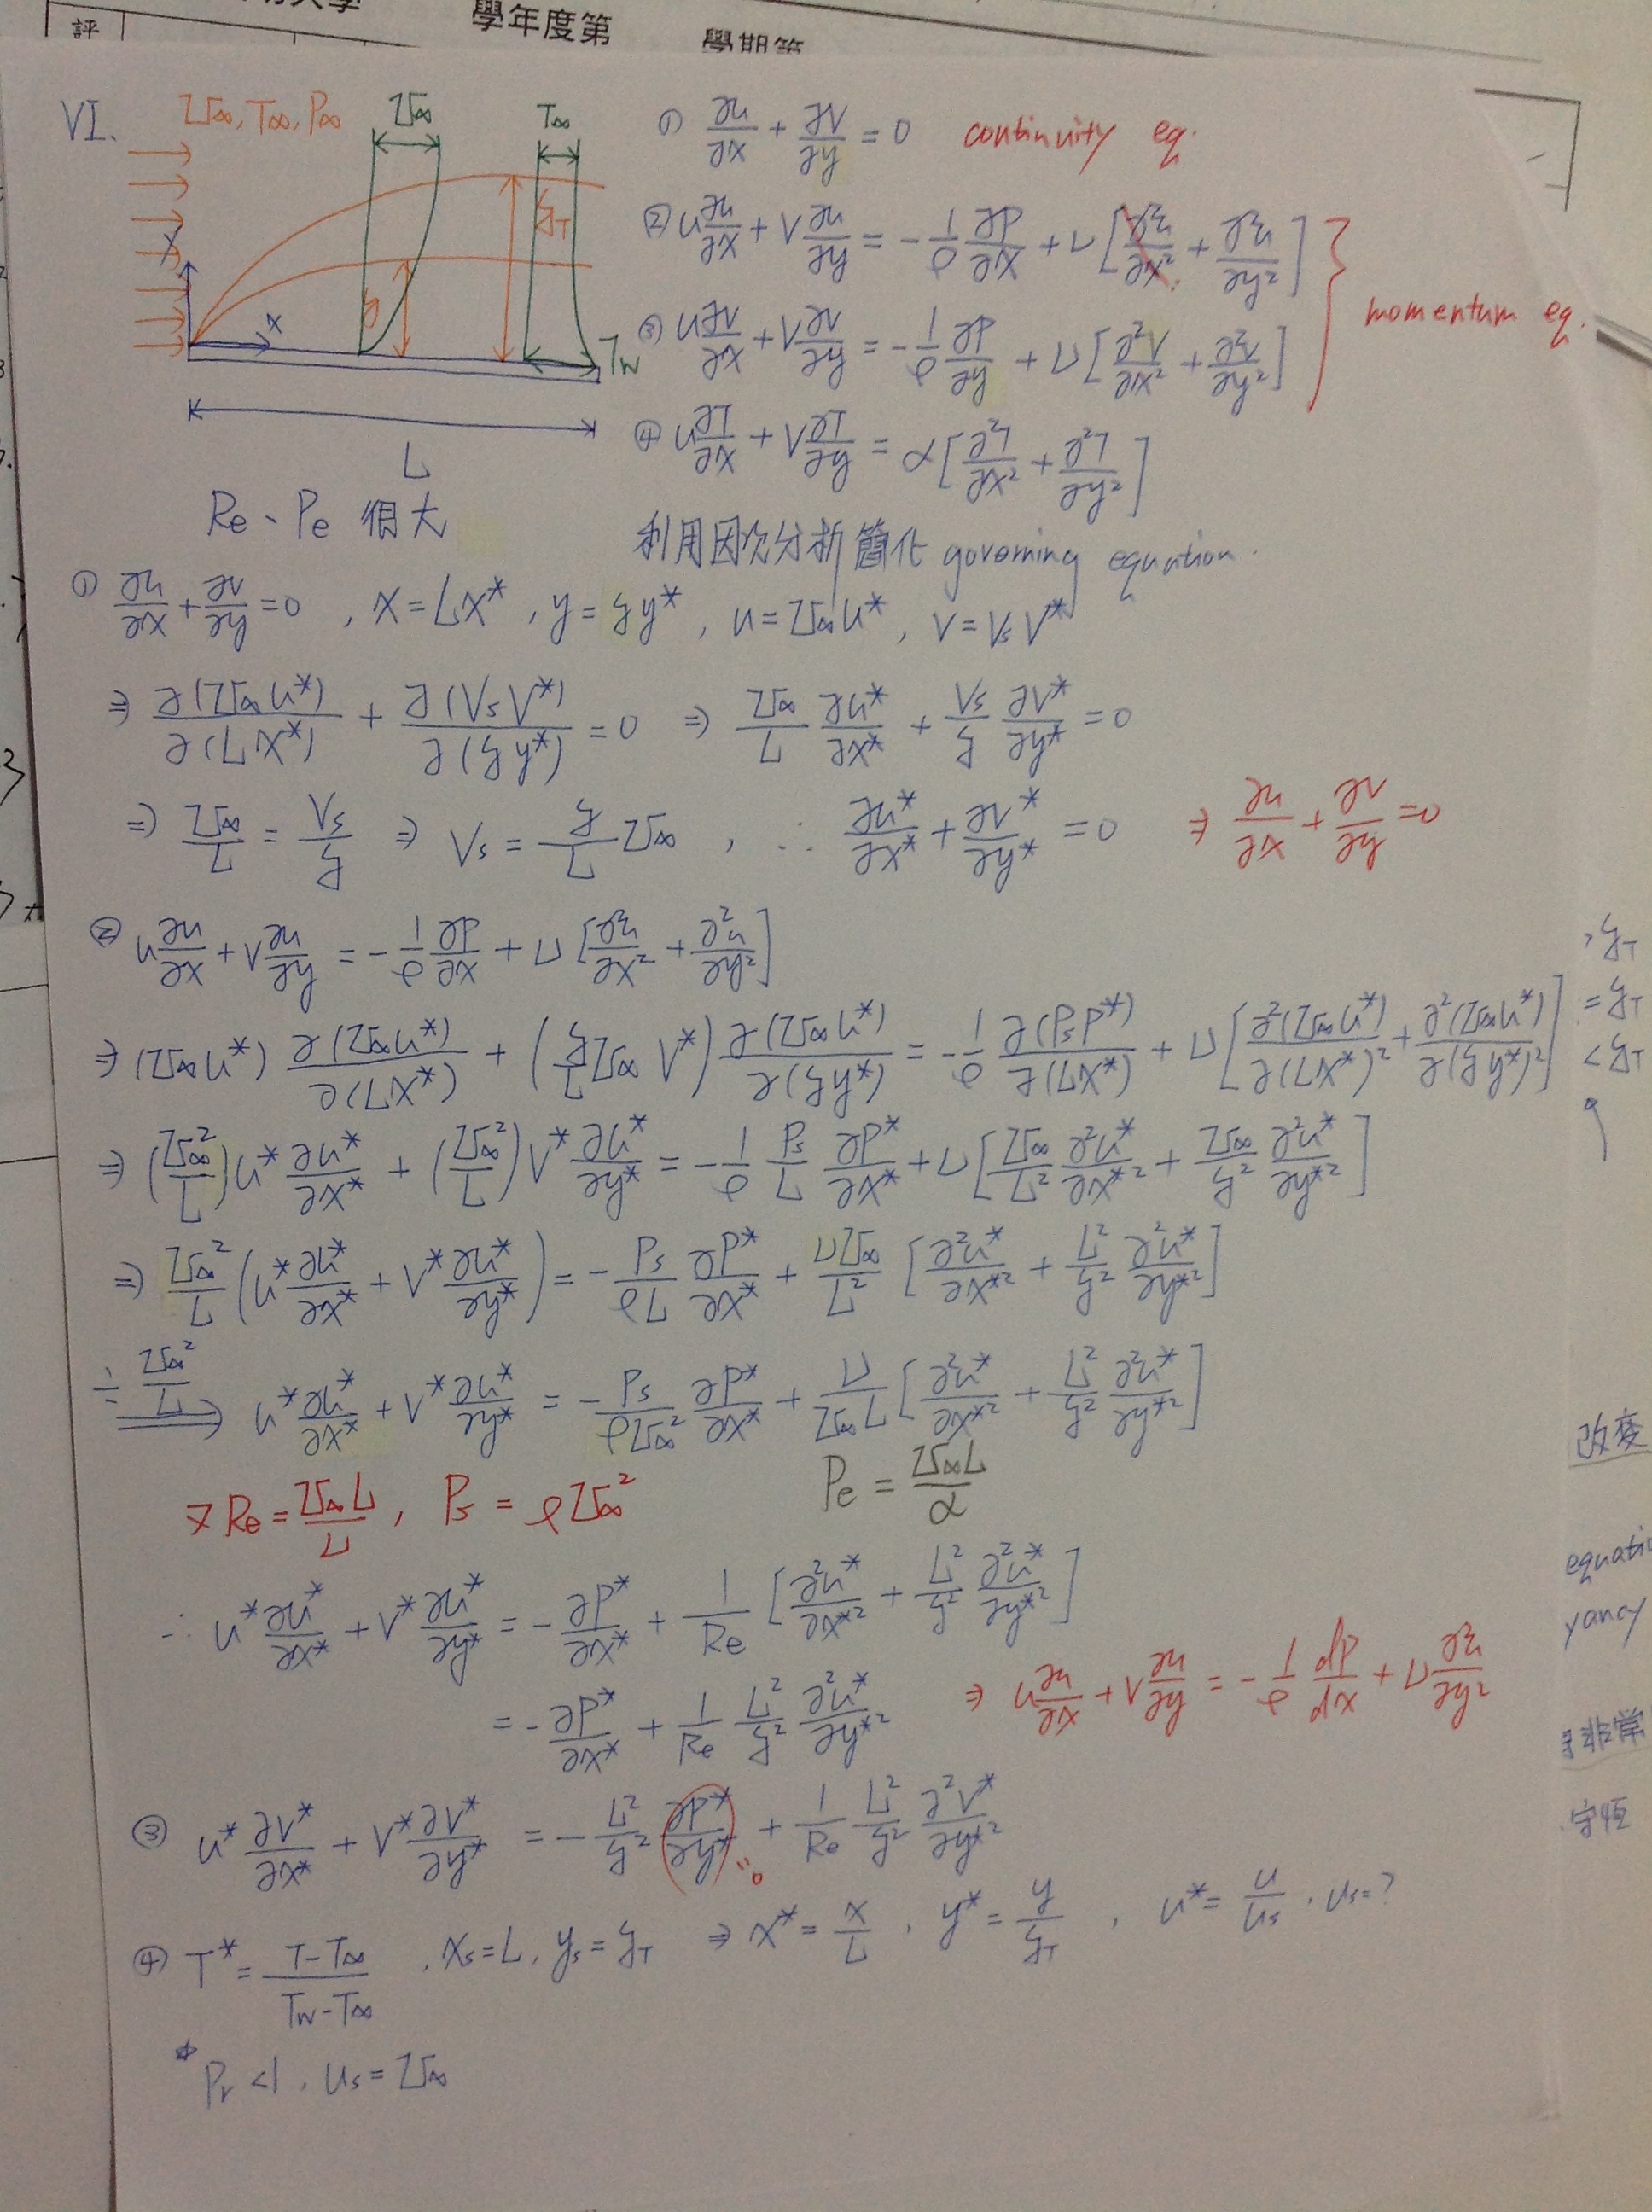 評
學年度第
學期第
VI.
U∞, T∞, P∞
U∞
T∞
Y
x
δ
δT
Tw
L
① ∂u/∂x + ∂v/∂y = 0 continuity eq.
② u ∂u/∂x + v ∂u/∂y = - 1/ρ ∂P/∂x + ν [∂²u/∂x² + ∂²u/∂y²]
③ u ∂v/∂x + v ∂v/∂y = - 1/ρ ∂P/∂y + ν [∂²v/∂x² + ∂²v/∂y²]
momentum eq.
④ u ∂T/∂x + v ∂T/∂y = α [∂²T/∂x² + ∂²T/∂y²]
Re、Pe 很大
利用因次分析簡化 governing equation.
① ∂u/∂x + ∂v/∂y = 0 , x = Lx* , y = δy* , u = U∞u* , v = Vs V*
⇒ ∂(U∞u*)/∂(Lx*) + ∂(Vs V*)/∂(δy*) = 0 ⇒ U∞/L ∂u*/∂x* + Vs/δ ∂V*/∂y* = 0
⇒ U∞/L = Vs/δ ⇒ Vs = δ/L U∞ , ∴ ∂u*/∂x* + ∂v*/∂y* = 0 ⇒ ∂u/∂x + ∂v/∂y = 0
② u ∂u/∂x + v ∂u/∂y = - 1/ρ ∂P/∂x + ν [∂²u/∂x² + ∂²u/∂y²]
⇒ (U∞u*) ∂(U∞u*)/∂(Lx*) + (δ/L U∞ V*) ∂(U∞u*)/∂(δy*) = - 1/ρ ∂(Ps P*)/∂(Lx*) + ν [∂²(U∞u*)/∂(Lx*)² + ∂²(U∞u*)/∂(δy*)²]
⇒ (U∞²/L) u* ∂u*/∂x* + (U∞²/L) V* ∂u*/∂y* = - 1/ρ Ps/L ∂P*/∂x* + ν [U∞/L² ∂²u*/∂x*² + U∞/δ² ∂²u*/∂y*²]
⇒ U∞²/L (u* ∂u*/∂x* + V* ∂u*/∂y*) = - Ps/ρL ∂P*/∂x* + νU∞/L² [∂²u*/∂x*² + L²/δ² ∂²u*/∂y*²]
÷ U∞²/L ⇒ u* ∂u*/∂x* + V* ∂u*/∂y* = - Ps/ρU∞² ∂P*/∂x* + ν/U∞L [∂²u*/∂x*² + L²/δ² ∂²u*/∂y*²]
又 Re = U∞L/ν , Ps = ρU∞²
Pe = U∞L/α
∴ u* ∂u*/∂x* + V* ∂u*/∂y* = - ∂P*/∂x* + 1/Re [∂²u*/∂x*² + L²/δ² ∂²u*/∂y*²]
= - ∂P*/∂x* + 1/Re L²/δ² ∂²u*/∂y*² ⇒ u ∂u/∂x + v ∂u/∂y = - 1/ρ dP/dx + ν ∂²u/∂y²
③ u* ∂V*/∂x* + V* ∂V*/∂y* = - L²/δ² ∂P*/∂y* + 1/Re L²/δ² ∂²V*/∂y*²
"0
④ T* = T-T∞/Tw-T∞ , xs = L , ys = δT ⇒ x* = x/L , y* = y/δT , u* = u/us , us = ?
* Pr < 1 , us = U∞
, δT
= δT
< δT
改變
yancy
非常
守恆